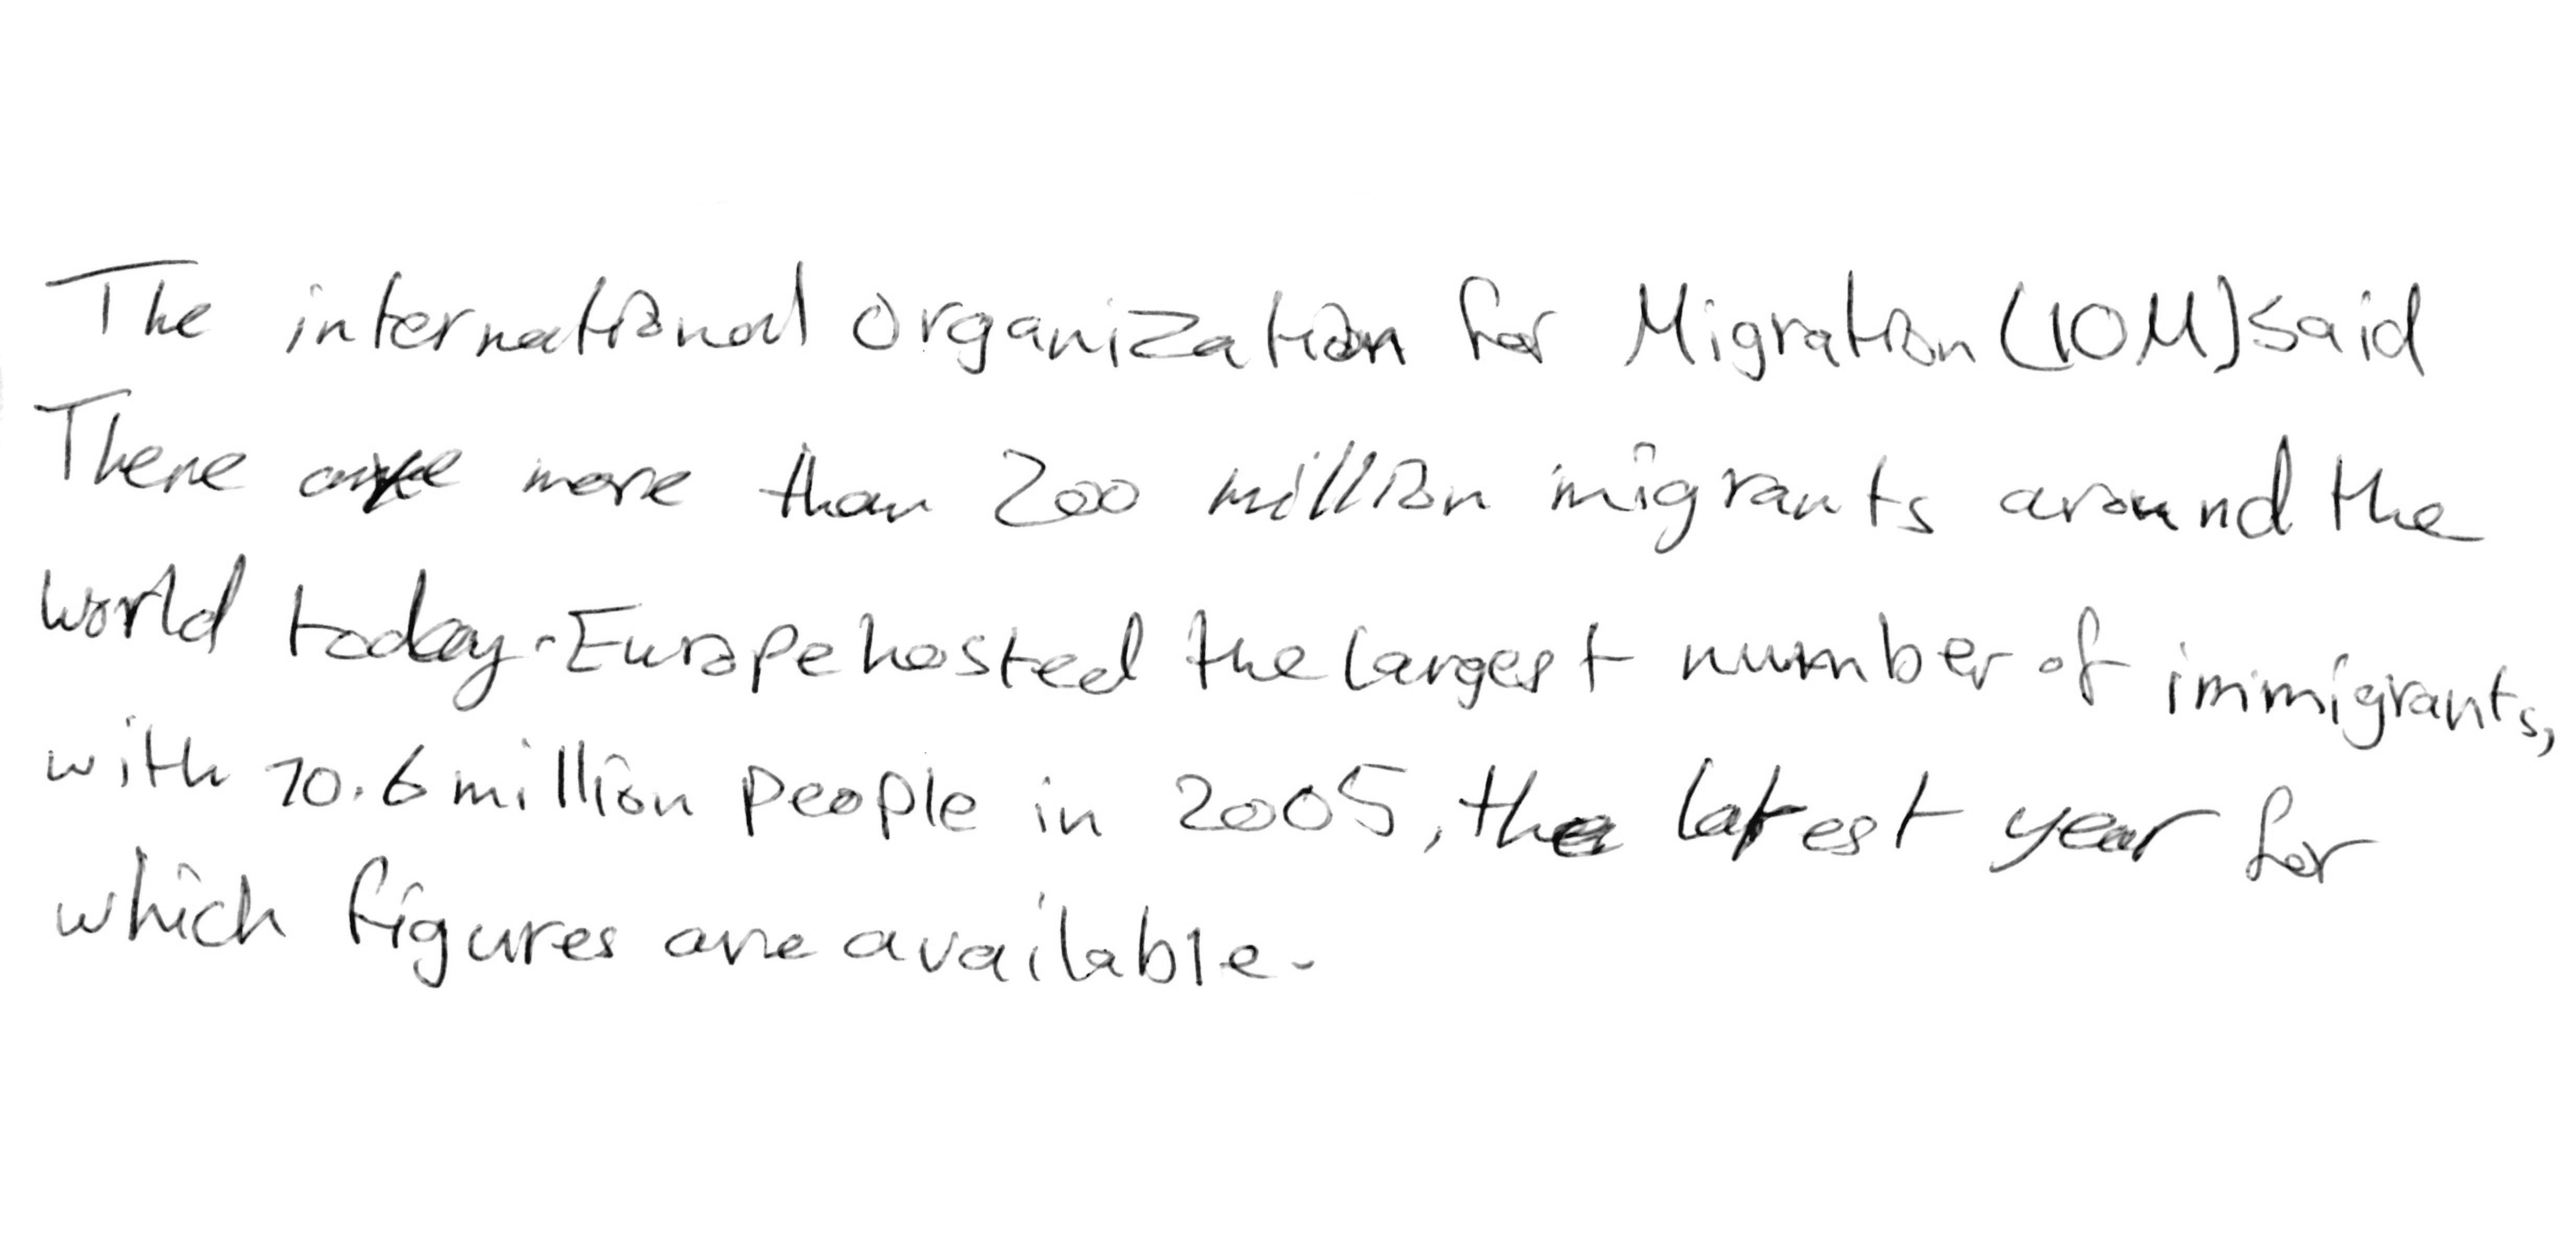 The international organization for Migration (IOM) said
There are more than 200 million migrants around the
world today. Europe hosted the largest number of immigrants,
with 70.6 million people in 2005, the latest year for
which figures are available.